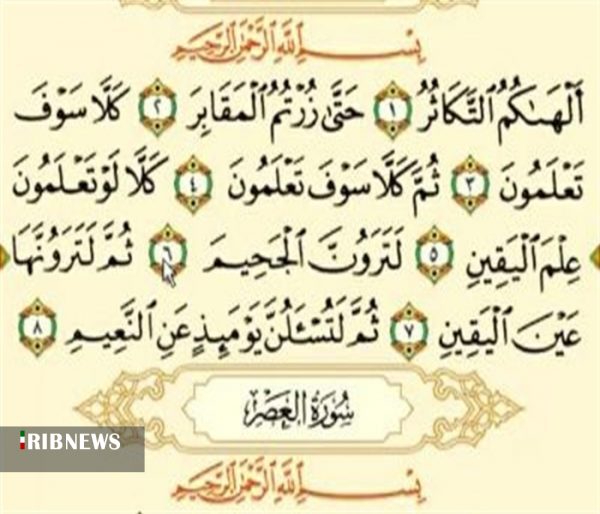 بِسْمِ اللَّهِ الرَّحْمَٰنِ الرَّحِيمِ
أَلْهَىٰكُمُ التَّكَاثُرُ ١ حَتَّىٰ زُرْتُمُ الْمَقَابِرَ ٢ كَلَّا سَوْفَ
تَعْلَمُونَ ٣ ثُمَّ كَلَّا سَوْفَ تَعْلَمُونَ ٤ كَلَّا لَوْ تَعْلَمُونَ
عِلْمَ الْيَقِينِ ٥ لَتَرَوُنَّ الْجَحِيمَ ٦ ثُمَّ لَتَرَوُنَّهَا
عَيْنَ الْيَقِينِ ٧ ثُمَّ لَتُسْـَٔلُنَّ يَوْمَئِذٍ عَنِ النَّعِيمِ ٨
سُورَةُ الْعَصْرِ
IRIBNEWS
بِسْمِ اللَّهِ الرَّحْمَٰنِ الرَّحِيمِ